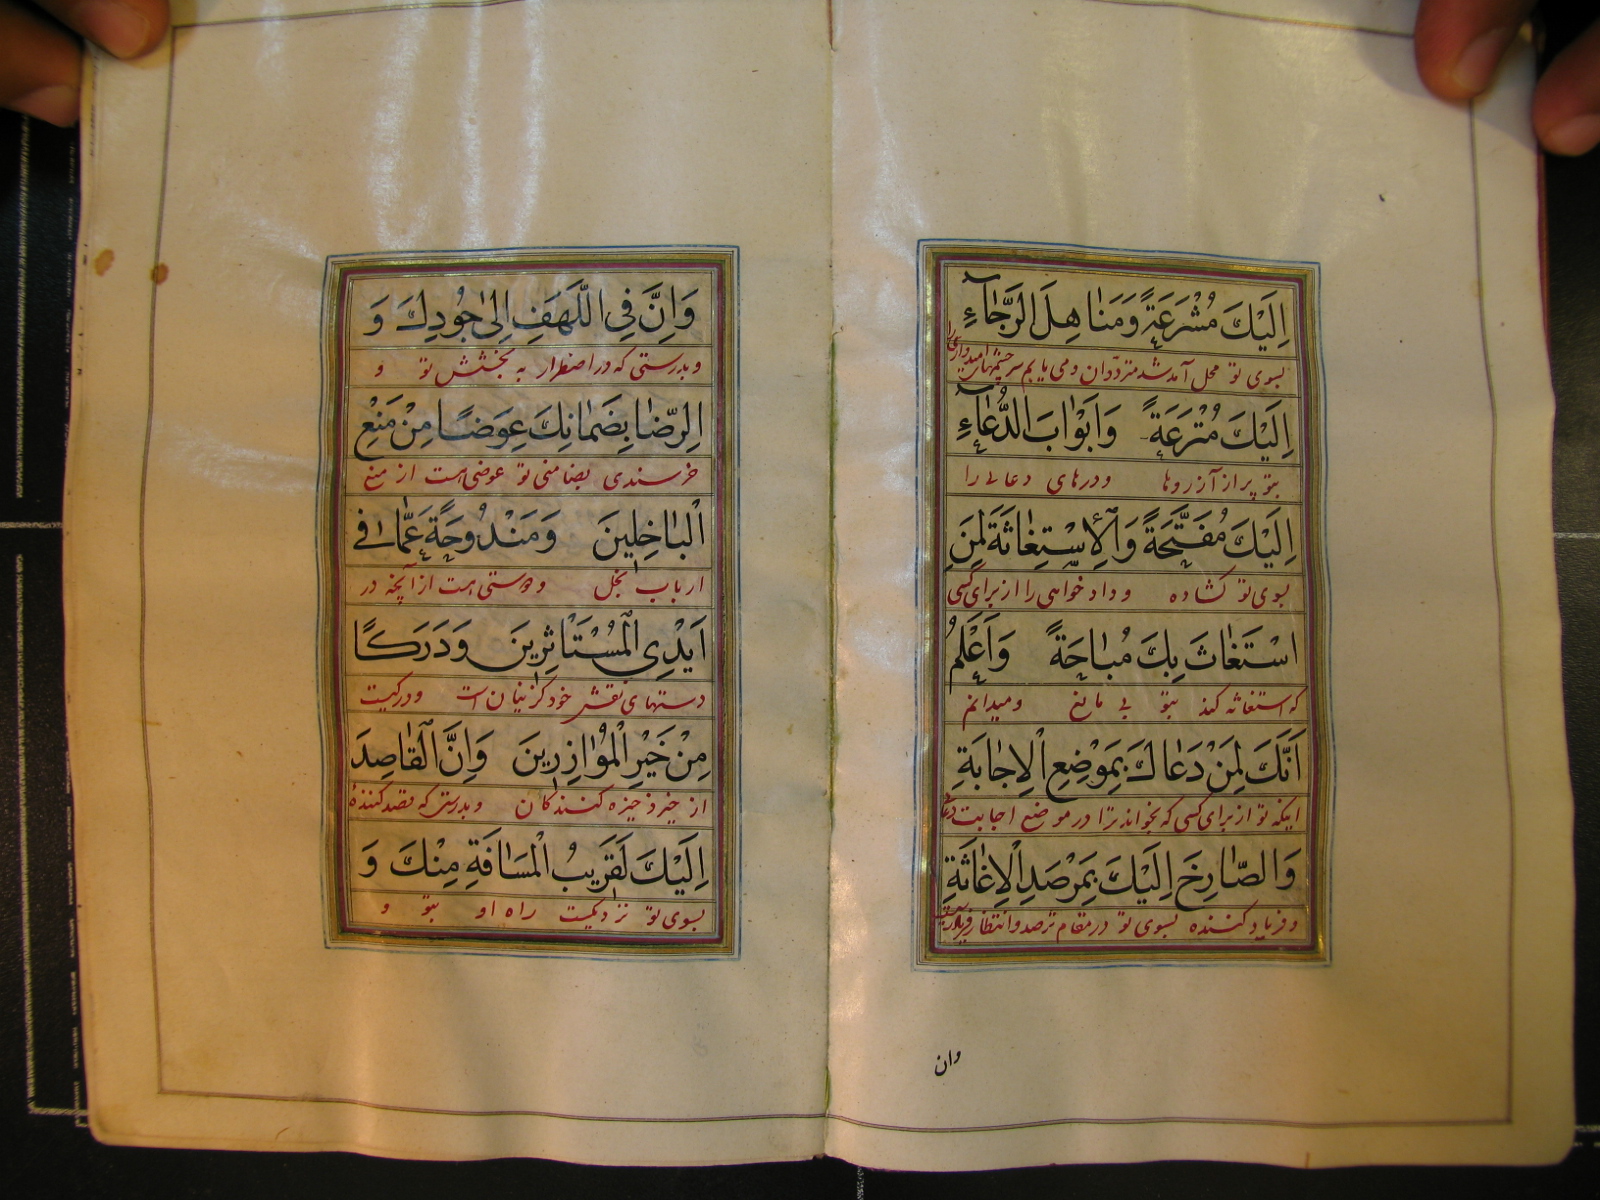 اِلَيْكَ مُشْرَعَةً وَمَنَاهِلَ الرَّجَاءِ
بسوی تو محل آمد شد متردّدان و می یابم سرچشمهای امیدواری را
اِلَيْكَ مُتْرَعَةً وَاَبْوَابَ الدُّعَاءِ
بتو پر از آزروها ودرهای دعا را
اِلَيْكَ مُفَتَّحَةً وَالْاِسْتِغَاثَةَ لِمَنِ
بسوی تو کشاده و داد خواهی را از برای کسی
اسْتَغَاثَ بِكَ مُبَاحَةً وَاَعْلَمُ
که استغاثه کند بتو بی مانع و میدانم
اَنَّكَ لِمَنْ دَعَاكَ بِمَوْضِعِ الْاِجَابَةِ
اینکه تو از برای کسی که بخواند ترا در موضع اجابت دعا
وَالصَّارِخَ اِلَيْكَ بِمَرْصَدِ الْاِغَاثَةِ
و فریاد کننده بسوی تو در مقام ترصد و انتظار
وان
وَاِنَّ فِي اللَّهَفِ اِلىٰ جُودِكَ وَ
و بدرستی که در اضطرار به بخشش تو و
الرِّضَا بِضَمَانِكَ عِوَضًا مِنْ مَنْعِ
خرسندی بضامنی تو عوضی است از منع
الْبَاخِلِينَ وَمَنْدُوحَةً عَمَّا فِي
ارباب بخل و است از آنچه در
اَيْدِي الْمُسْتَاْثِرِينَ وَدَرَكًا
دستهای نقش خود است و
مِنْ خَيْرِ الْمُوَازِرِينَ وَاِنَّ الْقَاصِدَ
از خیر ذخیره کنندکان و بدرستی که قصد کنندهٔ
اِلَيْكَ لَقَرِيبُ الْمَسَافَةِ مِنْكَ وَ
بسوی تو نزدیکست راه او بتو و